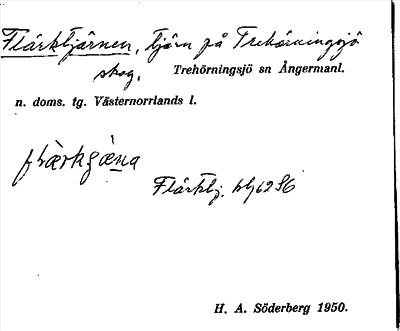 Flärktjärnen, tjärn på Trehörningsjö
skog. Trehörningsjö sn Ångermanl.
n. doms. tg. Västernorrlands l.
Flärktj. blj 62 S6
H. A. Söderberg 1950.